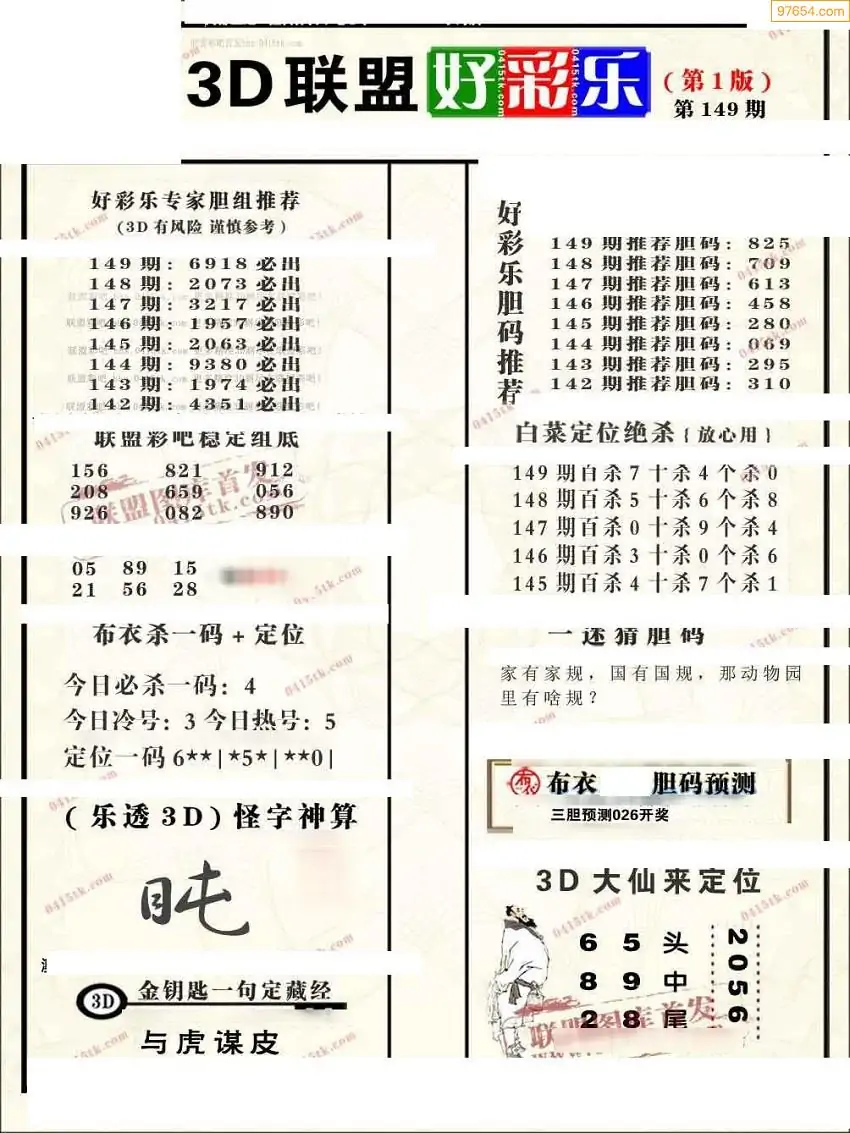 97654.com
3D联盟好彩乐(第1版)
第149期
好彩乐专家胆组推荐
(3D有风险 谨慎参考)
149期:6918必出
148期:2073必出
147期:3217必出
146期:1957必出
145期:2063必出
144期:9380必出
143期:1974必出
142期:4351必出
联盟彩吧稳定组底
156 821 912
208 659 056
926 082 890
05 89 15
21 56 28
布衣杀一码+定位
今日必杀一码:4
今日冷号:3 今日热号:5
定位一码6**|*5*|**0|
(乐透3D)怪字神算
3D 金钥匙一句定藏经
与虎谋皮
好彩乐胆码推荐
149期推荐胆码:825
148期推荐胆码:709
147期推荐胆码:613
146期推荐胆码:458
145期推荐胆码:280
144期推荐胆码:069
143期推荐胆码:295
142期推荐胆码:310
白菜定位绝杀{放心用}
149期百杀7十杀4个杀0
148期百杀5十杀6个杀8
147期百杀0十杀9个杀4
146期百杀3十杀0个杀6
145期百杀4十杀7个杀1
一迷猜胆码
家有家规,国有国规,那动物园
里有啥规?
布衣 胆码预测
三胆预测026开奖
3D大仙来定位
6 5 头
8 9 中
2 8 尾
2056
联盟图库首发
0415tk.com